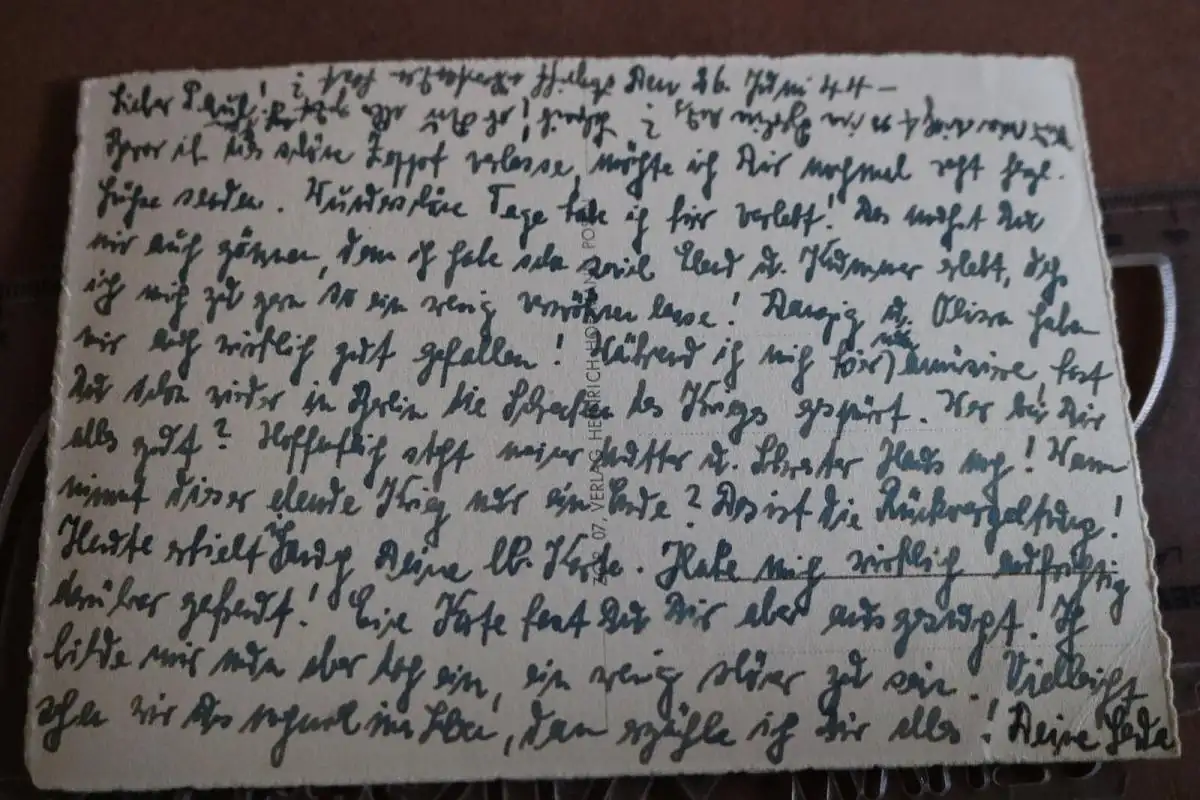 Lieber Paul! Den 26. Juni 44 –
Bevor ich das schöne Zoppot verlasse, möchte ich Dir nochmal recht herzl.
Grüße senden. Wunderschöne Tage habe ich hier verlebt! Das mußt Du
mir auch gönnen, denn ich habe schon soviel Elend u. Kummer erlebt, daß
ich mich zu gern so ein wenig verwöhnen lasse! Danzig u. Oliva haben
mir auch wirklich gut gefallen! Während ich mich hier nun amüsiere, hast
Du schon wieder in Berlin die Schrecken des Krieges gespürt. War bei Dir
alles gut? Hoffentlich steht meiner Mutter u. Haus noch! Wann
nimmt dieser elende Krieg nur ein Ende? Wo ist die Rückvergeltung!
Heute erhielt ich Deine lb. Karte. Habe mich wirklich aufrichtig
darüber gefreut! Eine Karte hast Du Dir aber ausgesucht. Ich
bilde mir nun aber doch ein, ein wenig schöner zu sein. Vielleicht
sehen wir uns nochmal im Leben, dann erzähle ich Dir alles! Deine
7092 07, VERLAG HEINRICH HO